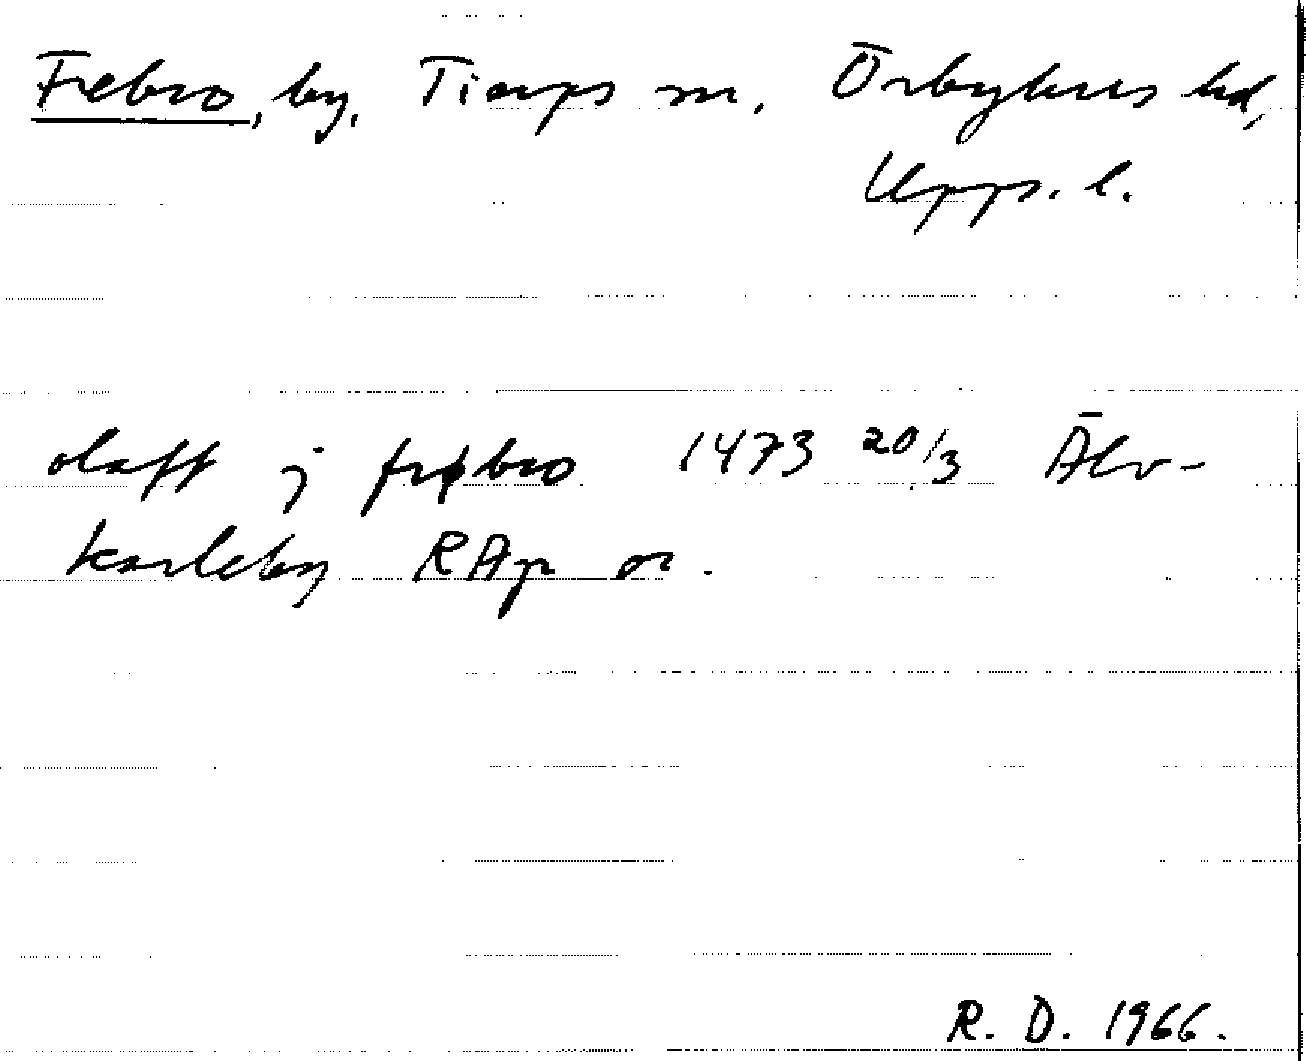 Frebro, by, Tierps sn, Örbyhus hd,
Upps. l.
olaff j frøbro 1473 20/3 Älv-
karleby RAp or.
R. D. 1966.